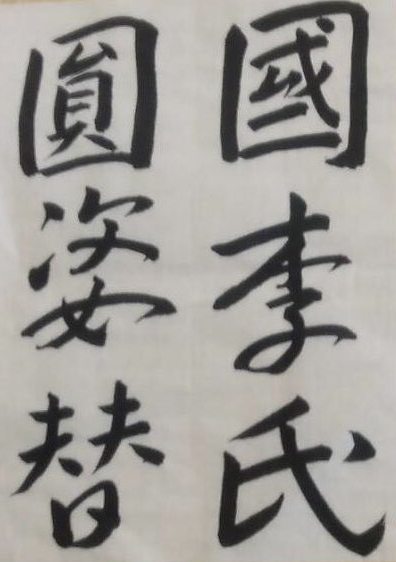 國李氏
圓姿替